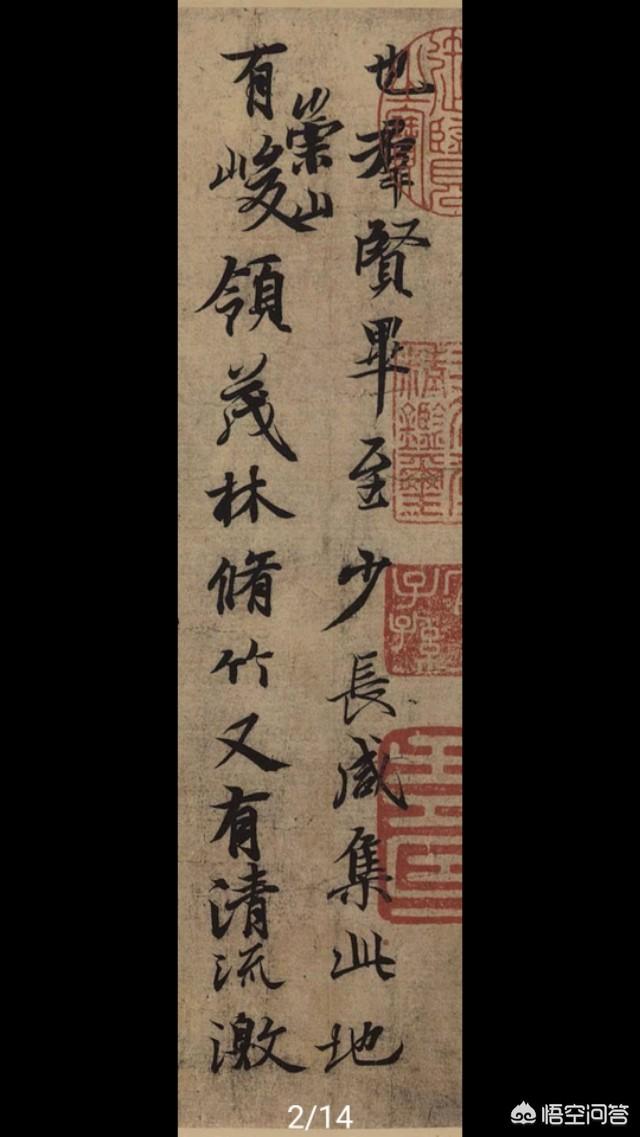 也羣賢畢至少長咸集此地
崇山
有峻領茂林脩竹又有清流激
2/14
悟空问答